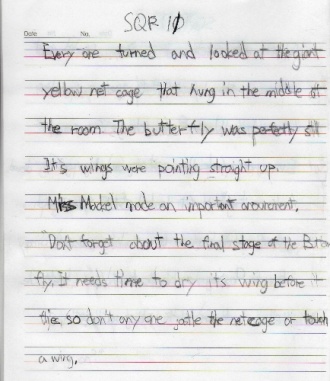 Date No.
SQR 10
Every one turned and looked at the giant
yellow net cage that hung in the middle of
the room. The butterfly was perfectly still
It's wings were pointing straight up.
Miss Model made an important
"Don't forget about the final stage of the
fly. It needs time to dry its wing before it
flies, so don't any one jostle the net cage or touch
a wing.